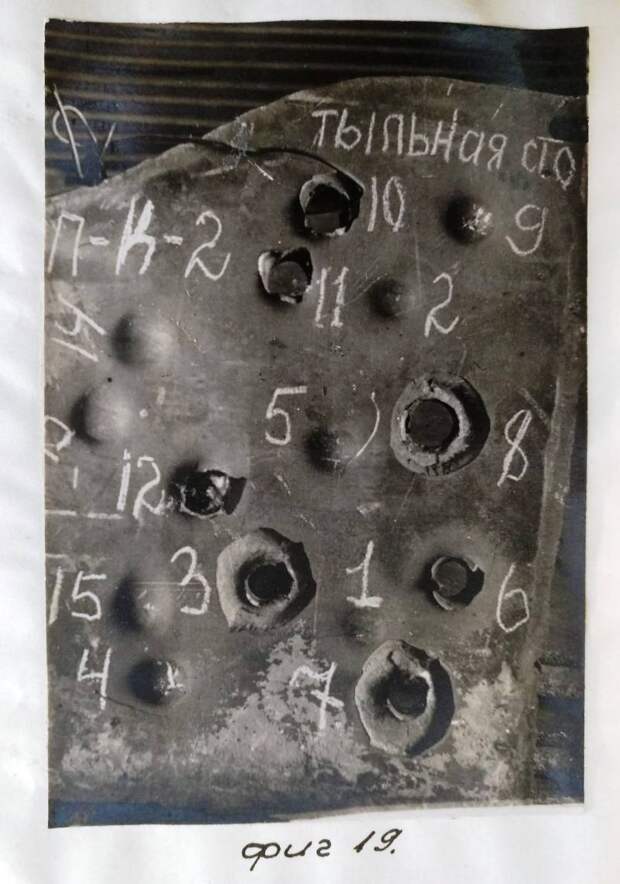 ТЫЛЬНАЯ СТО
10
9
П-К-2
11
2
14
5
8
12
15
3
1
6
4
7
фиг 19.